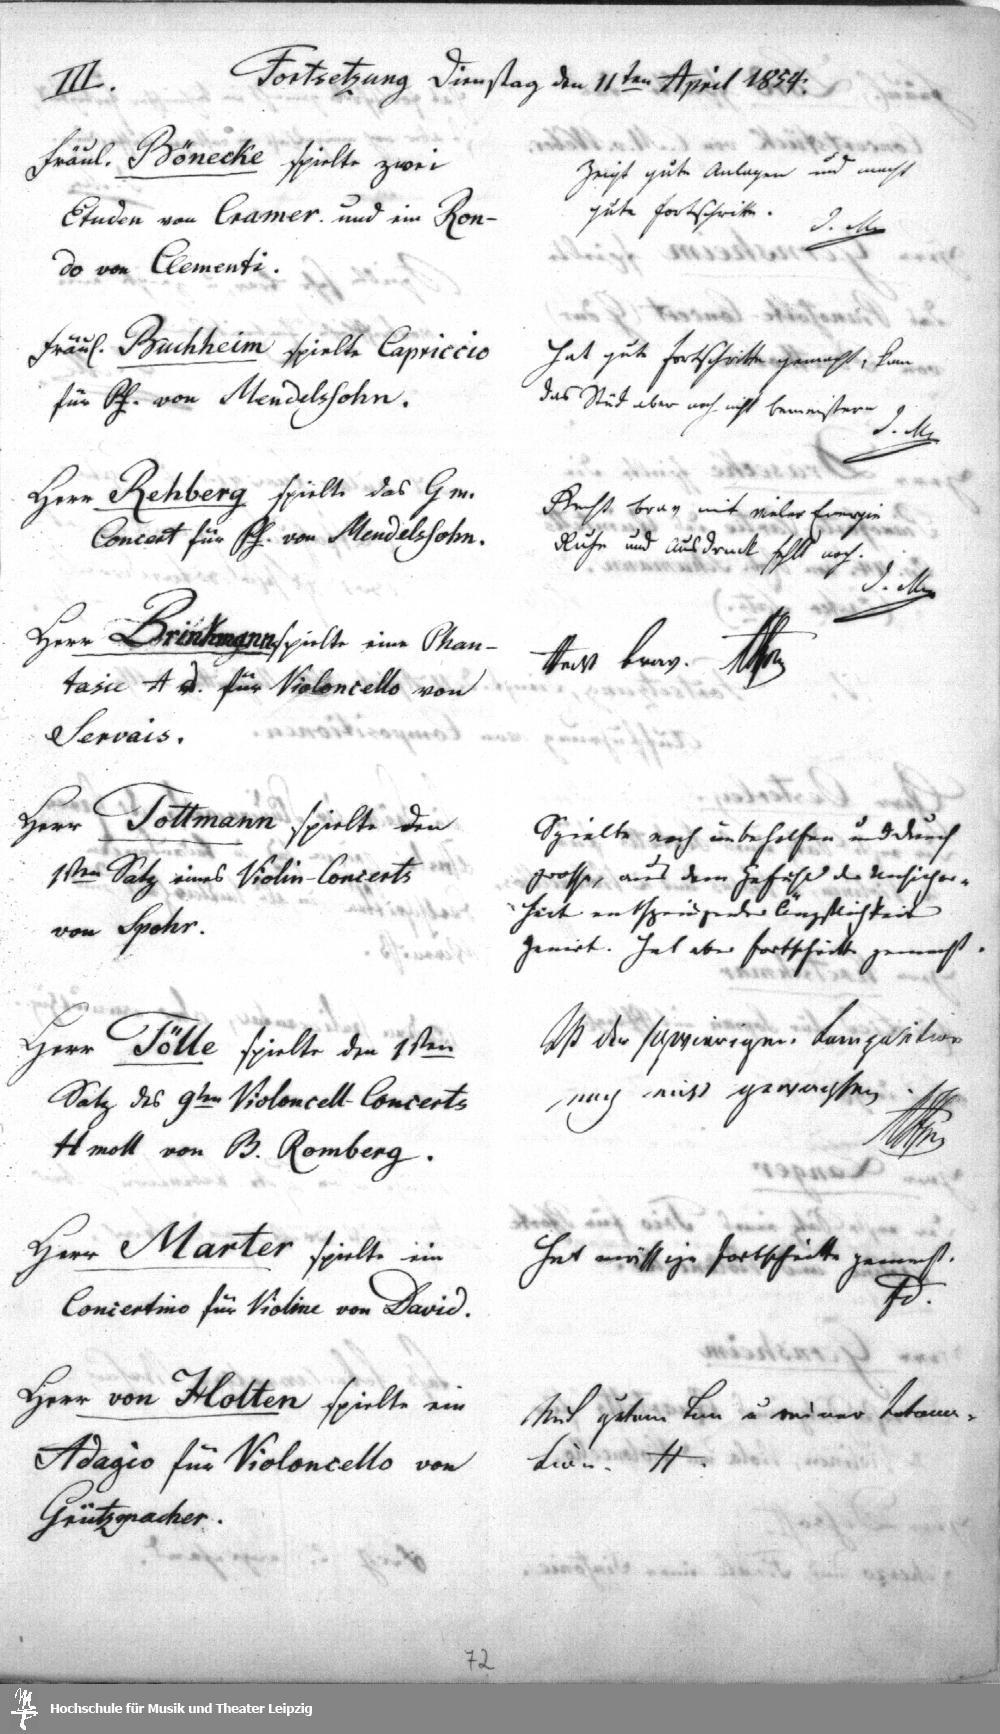 III. Fortsetzung Dienstag den 11ten April 1854.
Fräul. Bönecke spielte zwei
Etuden von Cramer und ein Ron-
do von Clementi.
Zeigt gute Anlagen und macht
gute Fortschritte.
Fräul. Buchheim spielte Capriccio
für Pf. von Mendelssohn.
Hat gute Fortschritte gemacht, kan
das Stück aber noch nicht bemeistern
Herr Rehberg spielte das G m.
Concert für Pf. von Mendelssohn.
Recht brav mit vieler Energie
Ruhe und Ausdruck fehlt noch.
Herr Brinkmann spielte eine Phan-
tasie A d. für Violoncello von
Servais.
Recht brav.
Herr Tottmann spielte den
1sten Satz eines Violin-Concerts
von Spohr.
Spielte noch unbeholfen und durch
grosse, aus dem Gefühl der Unsicher-
heit entspringender Ängstlichkeit
genirt. Hat aber Fortschritte gemacht.
Herr Tölle spielte den 1sten
Satz des 9ten Violoncell-Concerts
H moll von B. Romberg.
Ist der schwierigen Composition
noch nicht gewachsen.
Herr Marter spielte ein
Concertino für Violine von David.
Hat mässige Fortschritte gemacht.
Fd.
Herr von Holten spielte ein
Adagio für Violoncello von
Grützmacher.
Mit gutem Ton u reiner Intona-
tion.
72
Hochschule für Musik und Theater Leipzig